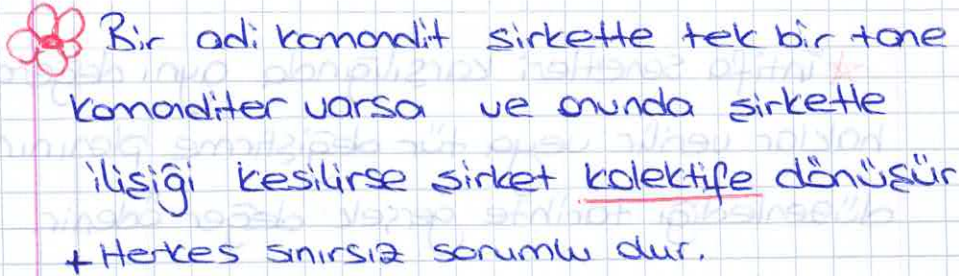 Bir adi komondit sirkette tek bir tane
komanditer varsa ve onunda şirketle
ilişiği kesilirse şirket kolektife dönüşür
+ Herkes sınırsız sorumlu dur.